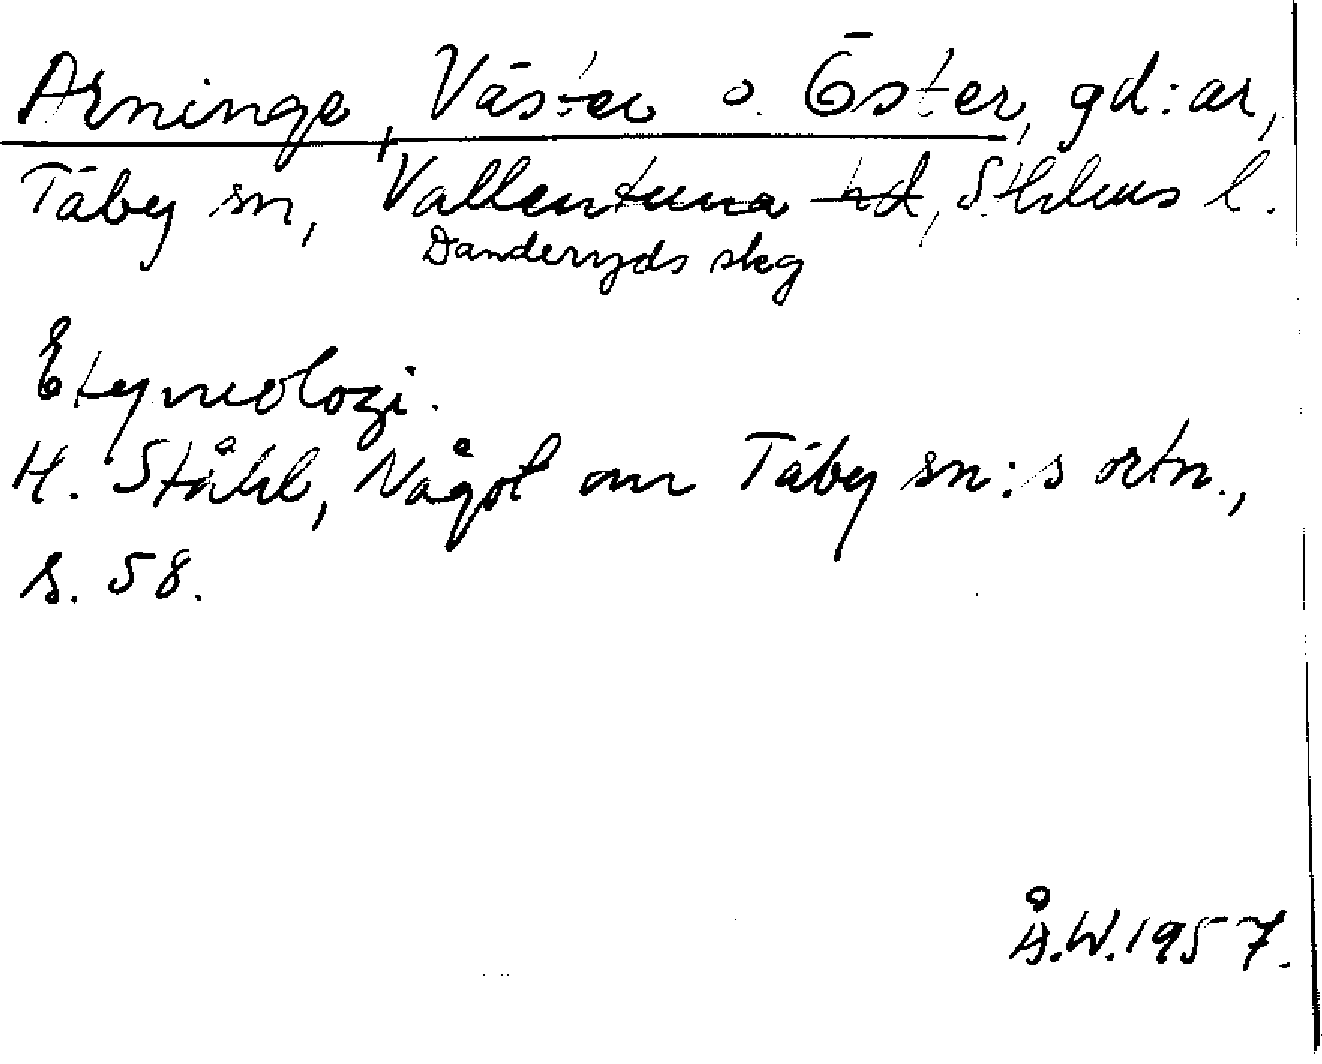 Arninge, Väster o. Öster, gd:ar,
Täby sn, Vallentuna hd, Sthlms l.
Danderyds skg
Etymologi.
H. Ståhl, Något om Täby sn:s ortn.,
s. 58.
Å.W. 1957.